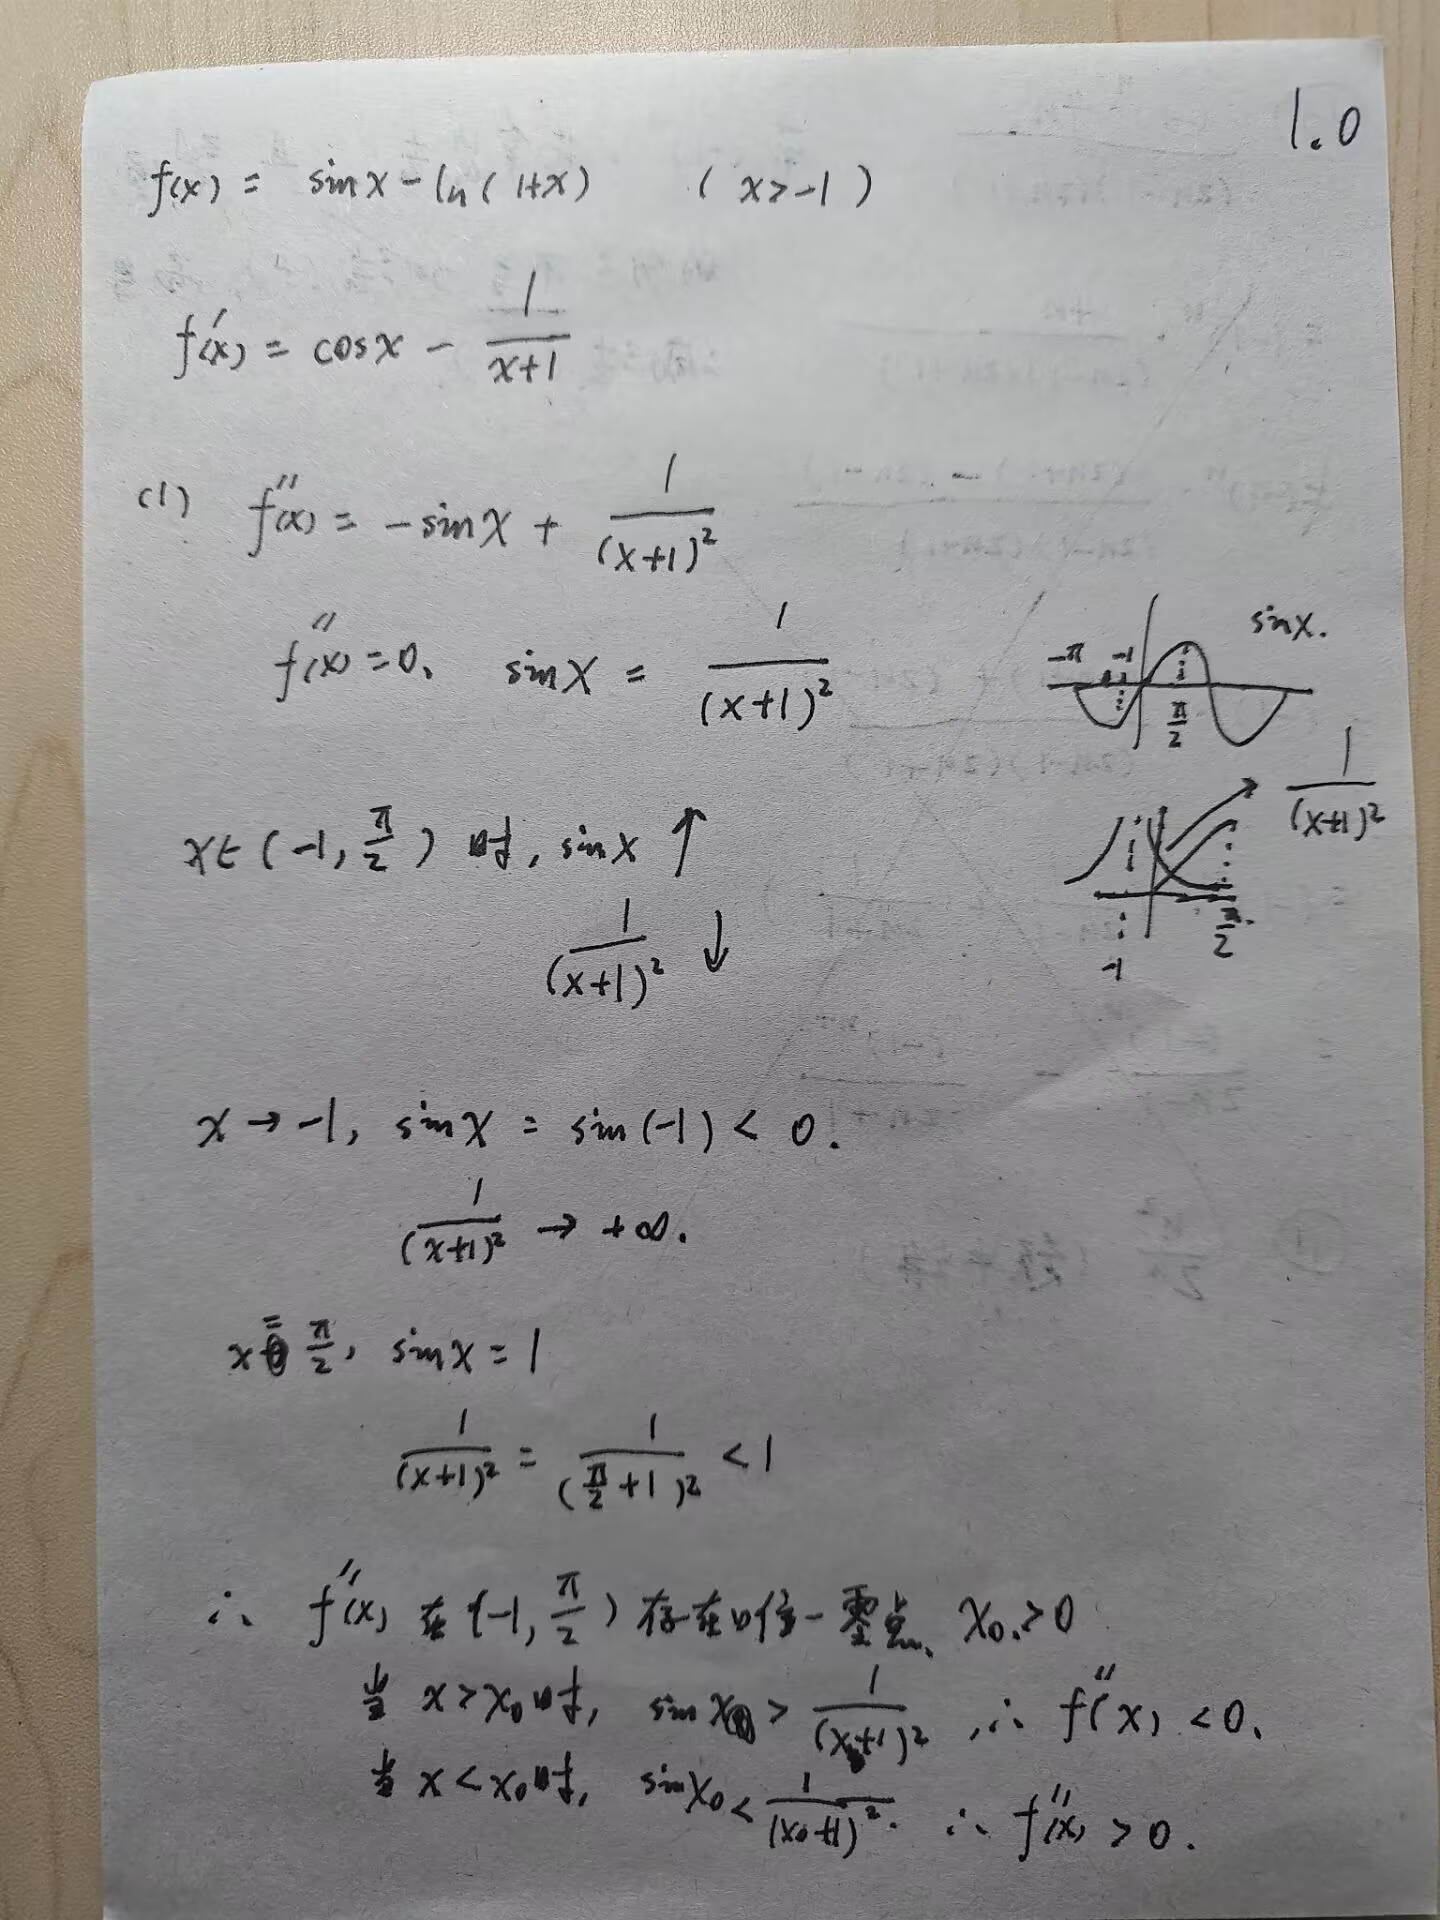 1.0
f(x) = sinx - ln(1+x) (x>-1)
f'(x) = cosx - 1/(x+1)
(1) f''(x) = -sinx + 1/(x+1)²
f''(x)=0, sinx = 1/(x+1)²
sinx.
-π -1 π/2
1/(x+1)²
-1 π/2.
x∈(-1, π/2)时, sinx ↑
1/(x+1)² ↓
x→-1, sinx = sin(-1) < 0.
1/(x+1)² → +∞.
x = π/2, sinx = 1
1/(x+1)² = 1/(π/2+1)² < 1
∴ f''(x) 在(-1, π/2)存在唯一零点, x₀>0
当 x>x₀时, sinx > 1/(x+1)², ∴ f''(x) <0.
当 x<x₀时, sinx₀ < 1/(x₀+1)². ∴ f''(x) >0.